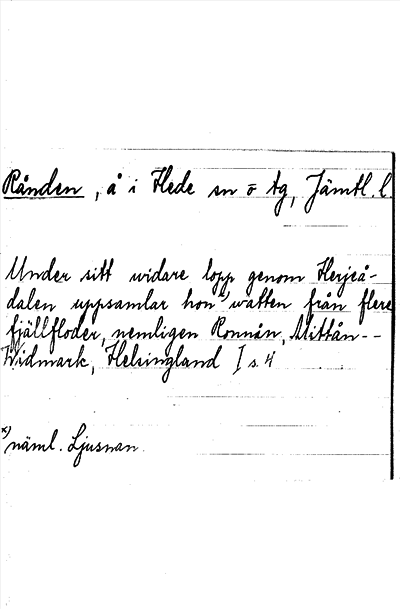 Rånden, å i Hede sn o tg, Jämtl. l
Under sitt widare lopp genom Herjeå-
dalen uppsamlar hon x) watten från flere
fjällfloder, nemligen Ronnån, Mittån--
Widmark, Helsingland I s. 4
x) näml. Ljusnan.